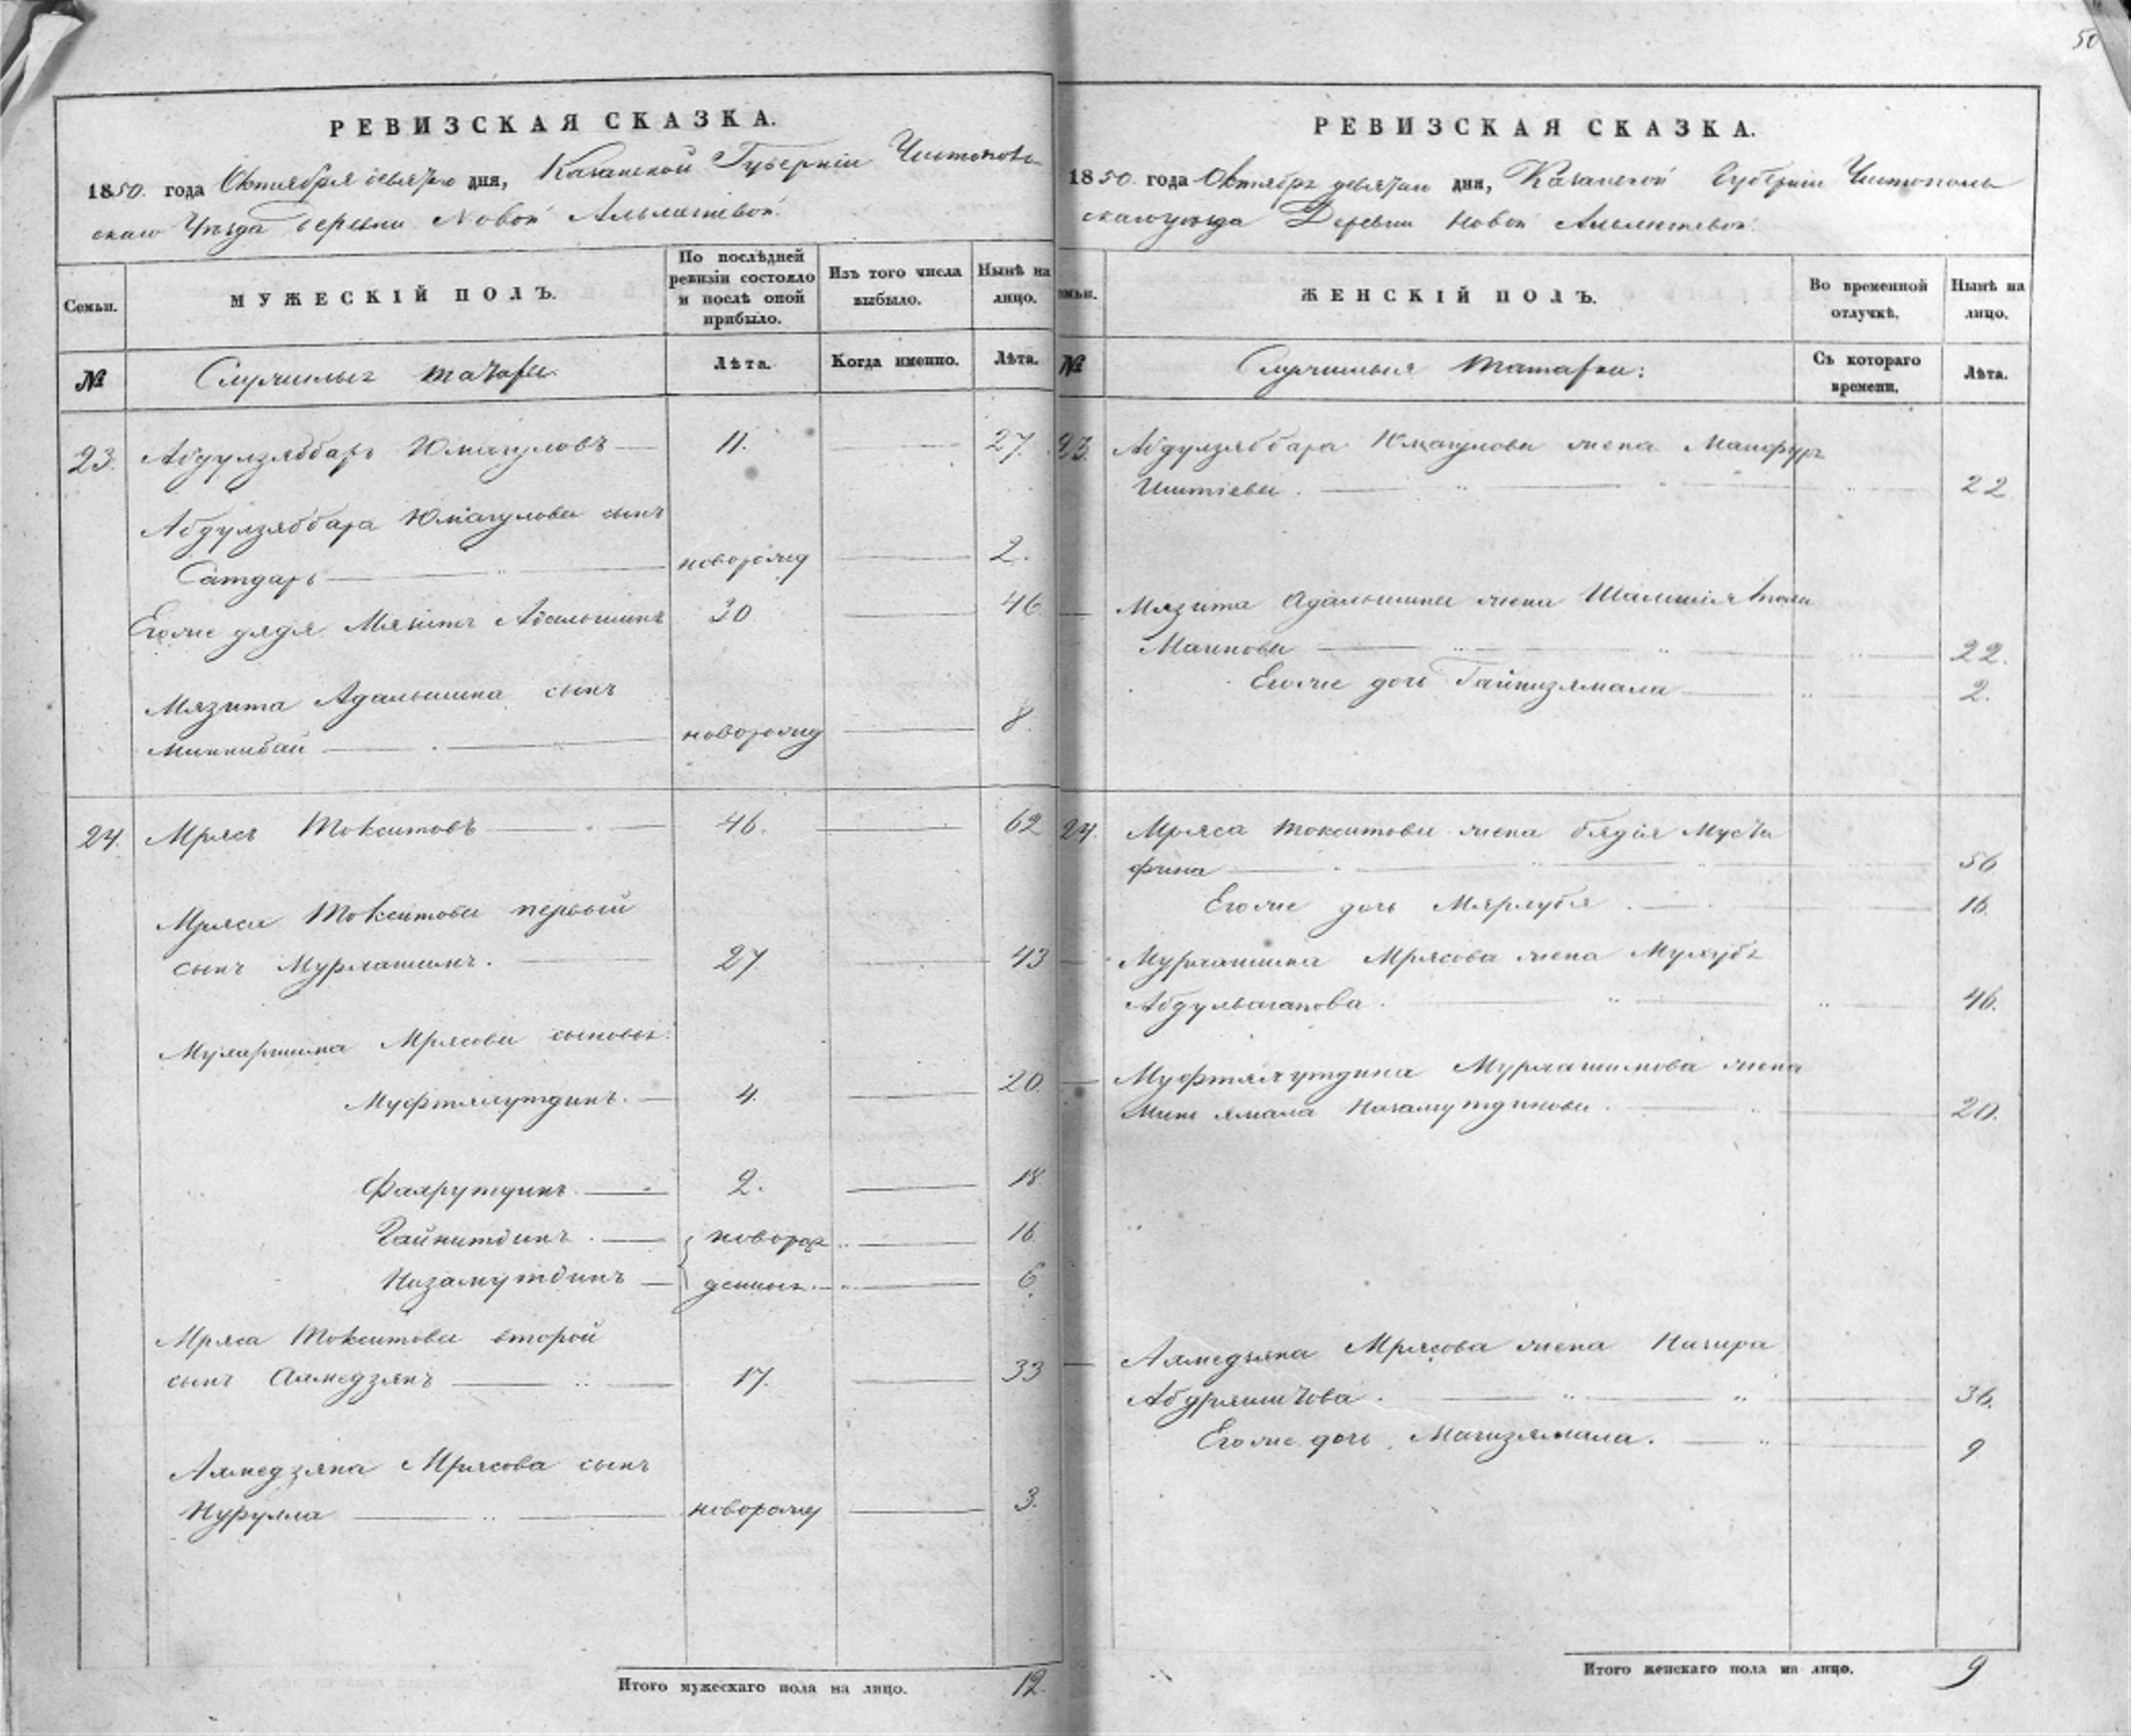 50
РЕВИЗСКАЯ СКАЗКА.
1850. года Октября девятаго дня, Казанской Губерніи Чистополь
скаго Уѣзда деревни Новой Альметевой.
Семьи.
МУЖЕСКІЙ ПОЛЪ.
По послѣдней ревизіи состояло и послѣ оной прибыло.
Изъ того числа выбыло.
Нынѣ на лицо.
№
Служилые татары
Лѣта.
Когда именно.
Лѣта.
23. Абдулзяббаръ Юмагуловъ 11. 27.
Абдулзяббара Юмагулова сынъ
Сатдаръ новорожд 2.
Егоже дядя Мязитъ Адальшинъ 30 46
Мязита Адальшина сынъ
Миннибай новорожд 8.
24. Мрясъ Токситовъ 46. 62
Мряса Токситова первый
сынъ Мурлашинъ. 27 43
Мрясова сыновья:
Муфтялутдинъ. 4. 20
Фахрутдинъ 2. 18
Гайнитдинъ. новорож 16
Низамутдинъ денные 6.
Мряса Токситова второй
сынъ Ахмедзянъ 17. 33
Ахмедзяна Мрясова сынъ
Нурулла новорожд 3.
Итого мужескаго пола на лицо. 12.
РЕВИЗСКАЯ СКАЗКА.
1850. года Октября девятаго дня, Казанской Губерніи Чистополь
скаго уѣзда Деревни Новой Альметевой.
ЖЕНСКІЙ ПОЛЪ.
Во временной отлучкѣ.
Нынѣ на лицо.
№
Служилыя татарки:
Съ котораго времени.
Лѣта.
23. Абдулзяббара Юмагулова жена
Иштіева. 22
Мязита Адальшина жена
22.
Егоже дочь Гайнизямала 2.
24. Мряса Токситова жена Бядія Муста
фина 56
Егоже дочь 16.
Мурлашина Мрясова жена
46.
Муфтялутдина Мурлашинова жена
Низамутдинова. 20.
Ахмедьяна Мрясова жена
Абдряшитова. 36.
Егоже дочь Магизямала. 9
Итого женскаго пола на лицо. 9